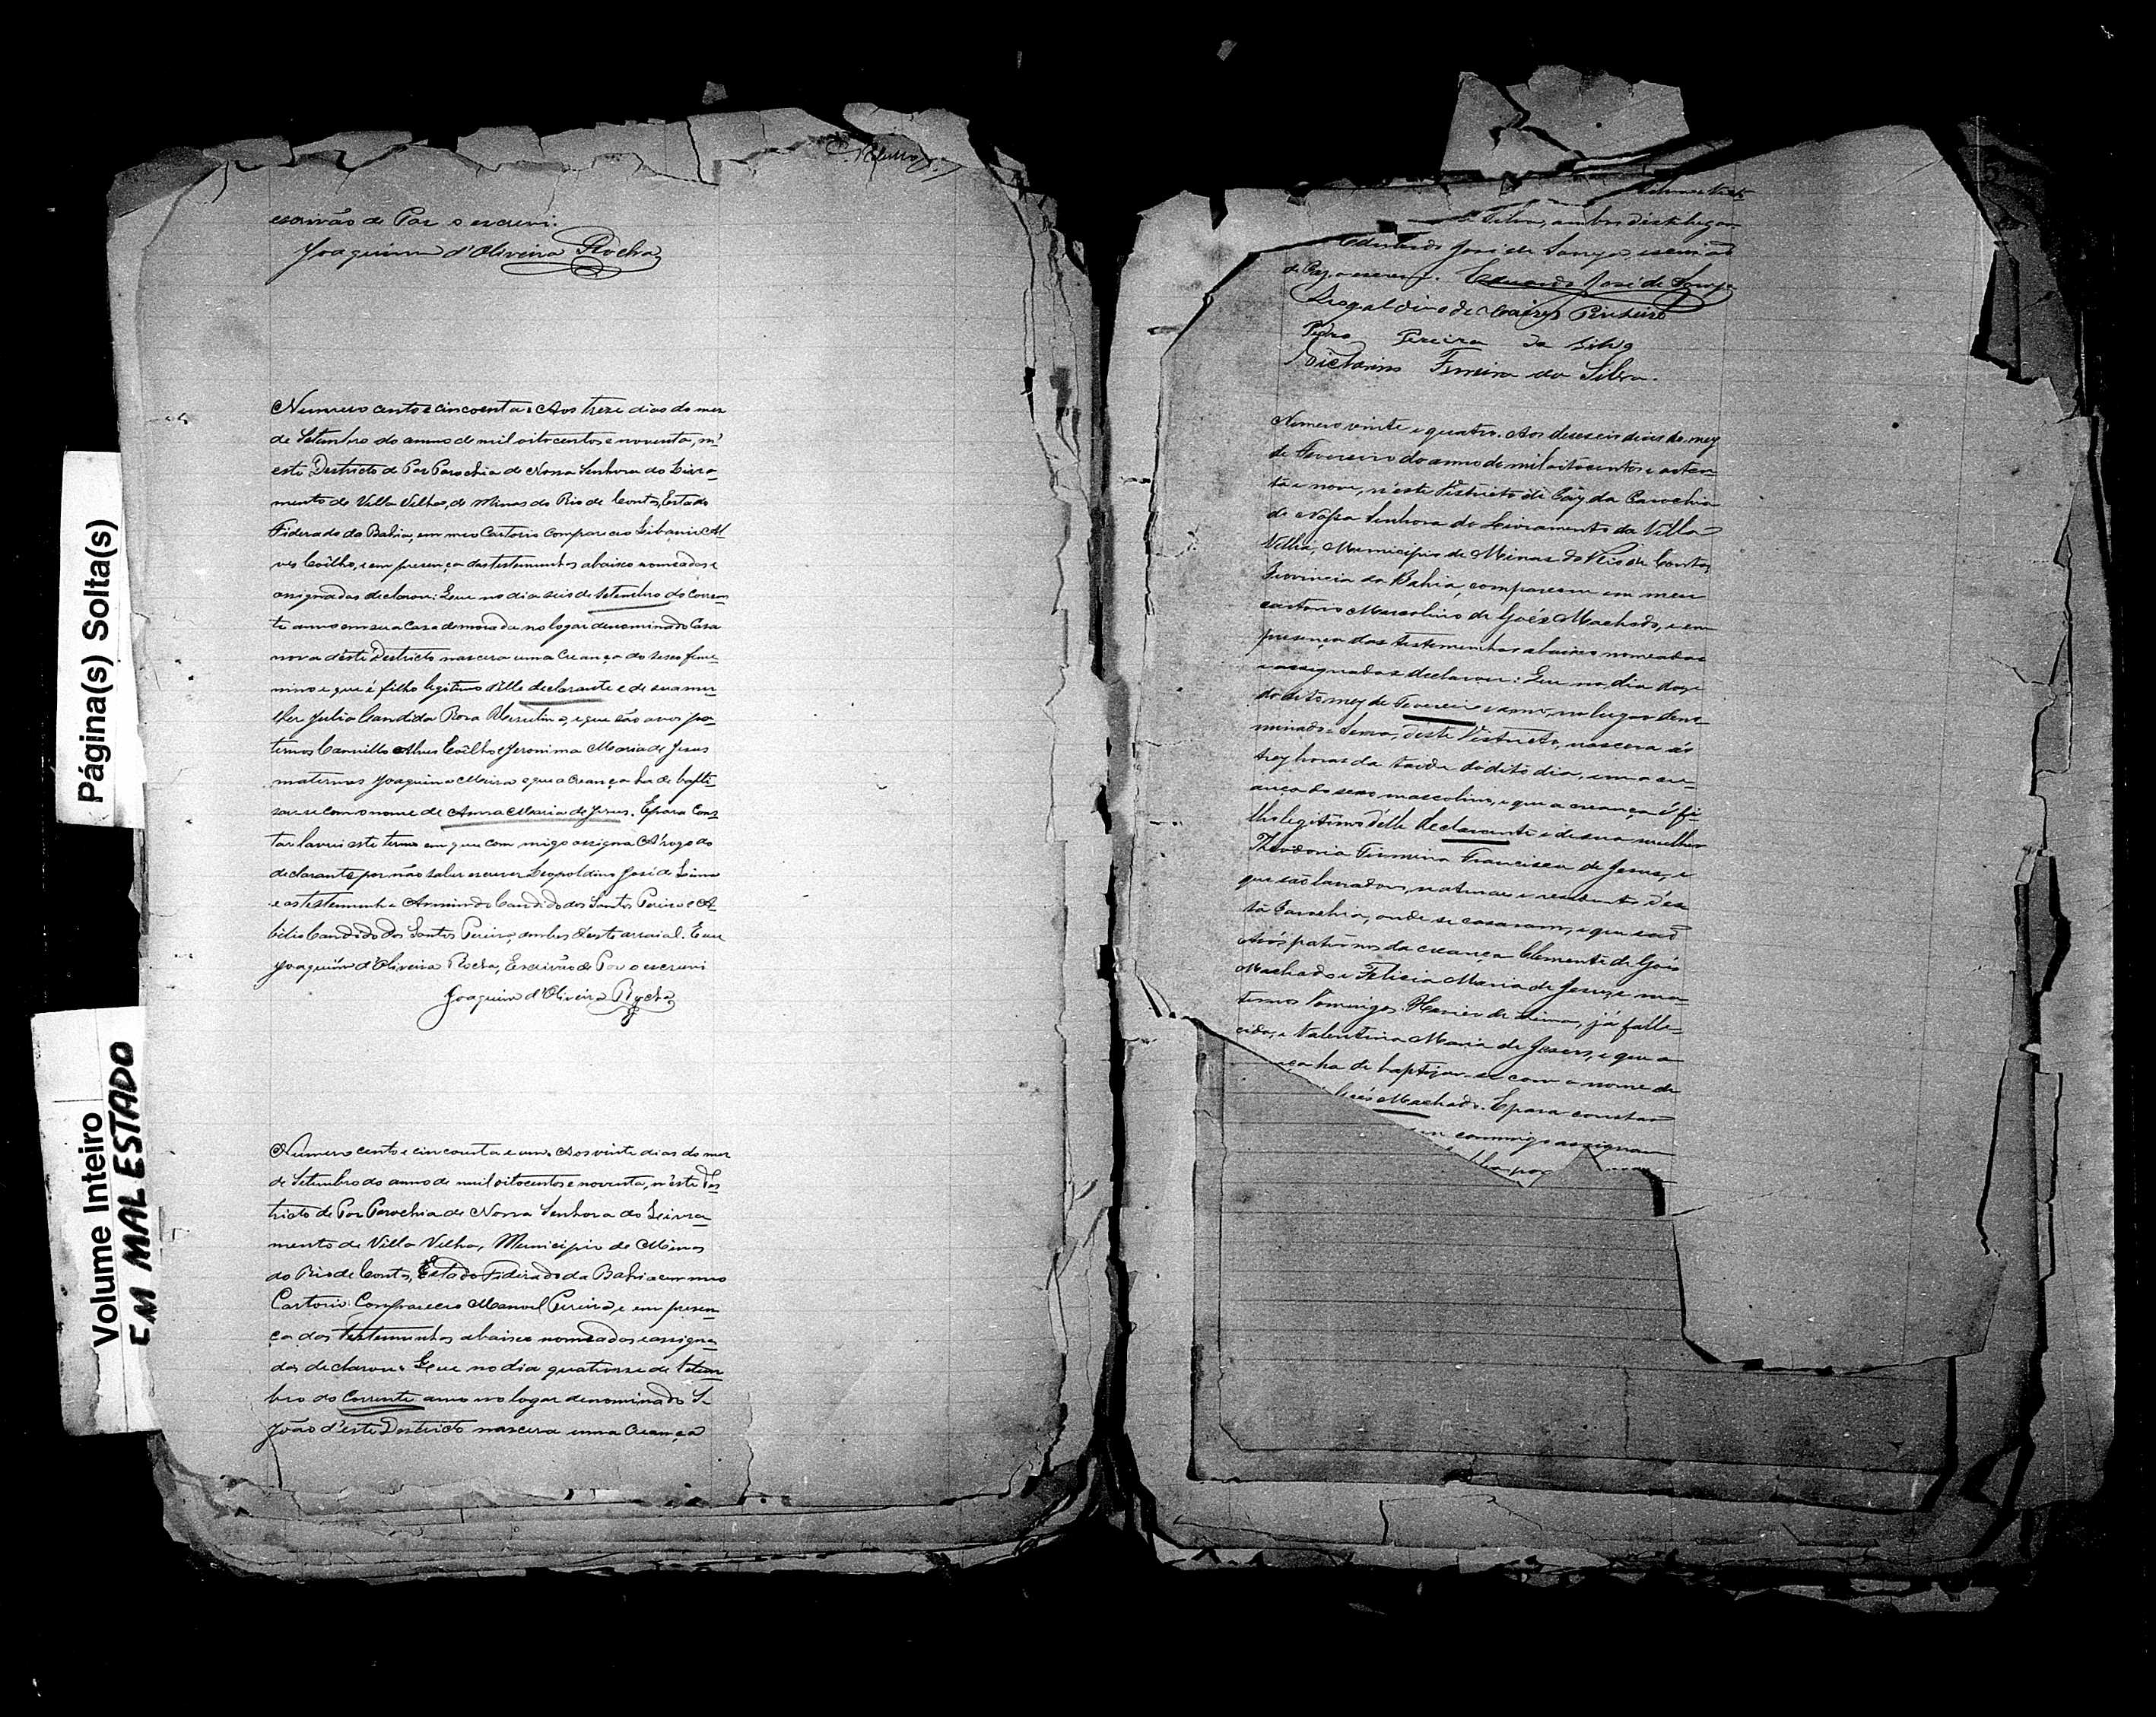 escrivão de Paz o escrevi.
Joaquim d'Oliveira Rocha
Numero cento e cincoenta. Aos treze dias do mez
de Setembro do anno de mil oitocentos e noventa, n'
este Destricto de Paz Parochia de Nossa Senhora do Livra-
mento de Villa Velha, de Minas do Rio de Contas, Estado
Federado da Bahia, em meo Cartorio compareceo Libanio Al
ves Coêlho, e em presença das testemunhas abaixo nomeadas e
assignadas declarou: Que no dia seis de Setembro do corren
te anno em sua casa de morada no logar denominado Casa
nova d'este Destricto nascera uma creança do sexo feme-
nino e que é filho legitimo d'elle declarante e de sua mu-
lher Julia Candida Rosa, e que são avos pa-
ternos Camillo Alves Coêlho e Jeronima Maria de Jesus
maternos Joaquina Maria e que a creança ha de bapti-
sar-se com o nome de Anna Maria de Jesus. E para cons
tar lavrei este termo em que com migo assigna A'rogo do
declarante por não saber escrever Leopoldino José de Lima
e as testemunha Armindo Candido dos Santos Pereira e A-
bilio Candido dos Santos Pereira, ambos d'este arraial. Eu
Joaquim d'Oliveira Rocha, Escrivão de Paz o escrevi
Joaquim d'Oliveira Rocha
Numero cento e cincoenta e um. Aos vinte dias do mez
de Setembro do anno de mil oitocentos e noventa, n'este Des
tricto de Paz Parochia de Nossa Senhora do Livra-
mento de Villa Velha, Municipio de Minas
do Rio de Contas, Estado Federado da Bahia em meo
Cartorio: Compareceo Manoel Pereira, e em presen-
ça das testemunhas abaixo nomeadas e assigna
das declarou: Que no dia quatorze de Setem
bro do corrente anno no logar denominado S.
João d'este Destricto nascera uma creança
Silva, ambos deste lugar
José de Souza escrivão
de Paz, o escrevi. Eduardo José de Souza
de Caires Pinheiro
Pedro Pereira da Silva
Victorino Ferreira da Silva.
Numero vinte e quatro. Aos deseseis dias do mez
de Fevereiro do anno de mil oitocentos e oiten-
ta e nove, n'este Destricto de Paz da Parochia
de Nossa Senhora do Livramento da Villa
Velha, Municipio de Minas do Rio de Contas,
Provincia da Bahia, compareceu em meu
cartorio Marcolino de Goés Machado, e em
presença das testemunhas abaixo nomeadas
e assignadas declarou: Que no dia doze
do dito mez de Fevereiro e anno, no lugar deno-
minado, deste Destricto, nascera ás
trez horas da tarde do dito dia, uma cre-
ança do sexo masculino, e que a creança é fi-
lho legitimo d'elle declarante e de sua mulher
Theodoria Firmina Francisca de Jesus, e
que são lavradores, naturaes e residentes des-
ta Parochia, onde se casaram, e que são
Avós paternos da creança Clemente de Goés
Machado e Felicia Maria de Jesus, e ma-
ternos Domingos Xavier de Lima, já falle-
cido, e Valentina Maria de Jesus, e que a
ça ha de baptizar-se com o nome de
Goés Machado. E para constar
commigo assignam
Página(s) Solta(s)
Volume Inteiro
EM MAL ESTADO